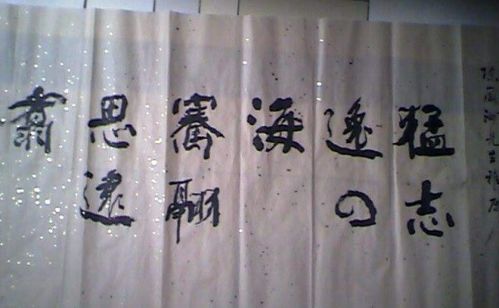 猛志
逸四
海
騫翮
思遠
翥